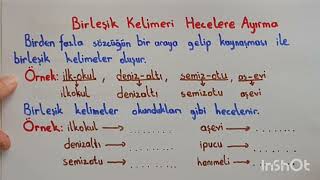 Birleşik Kelimeri Hecelere Ayırma
Birden fazla sözcüğün bir araya gelip kaynaşması ile
birleşik kelimeler oluşur.
Örnek: ilk-okul , deniz-altı, semiz-otu, aş-evi
ilkokul denizaltı semizotu aşevi
Birleşik kelimeler okundukları gibi hecelenir.
Örnek: ilkokul → ....... aşevi → .......
denizaltı → ....... ipucu → .......
semizotu → ....... hanımeli → .......
InShOt